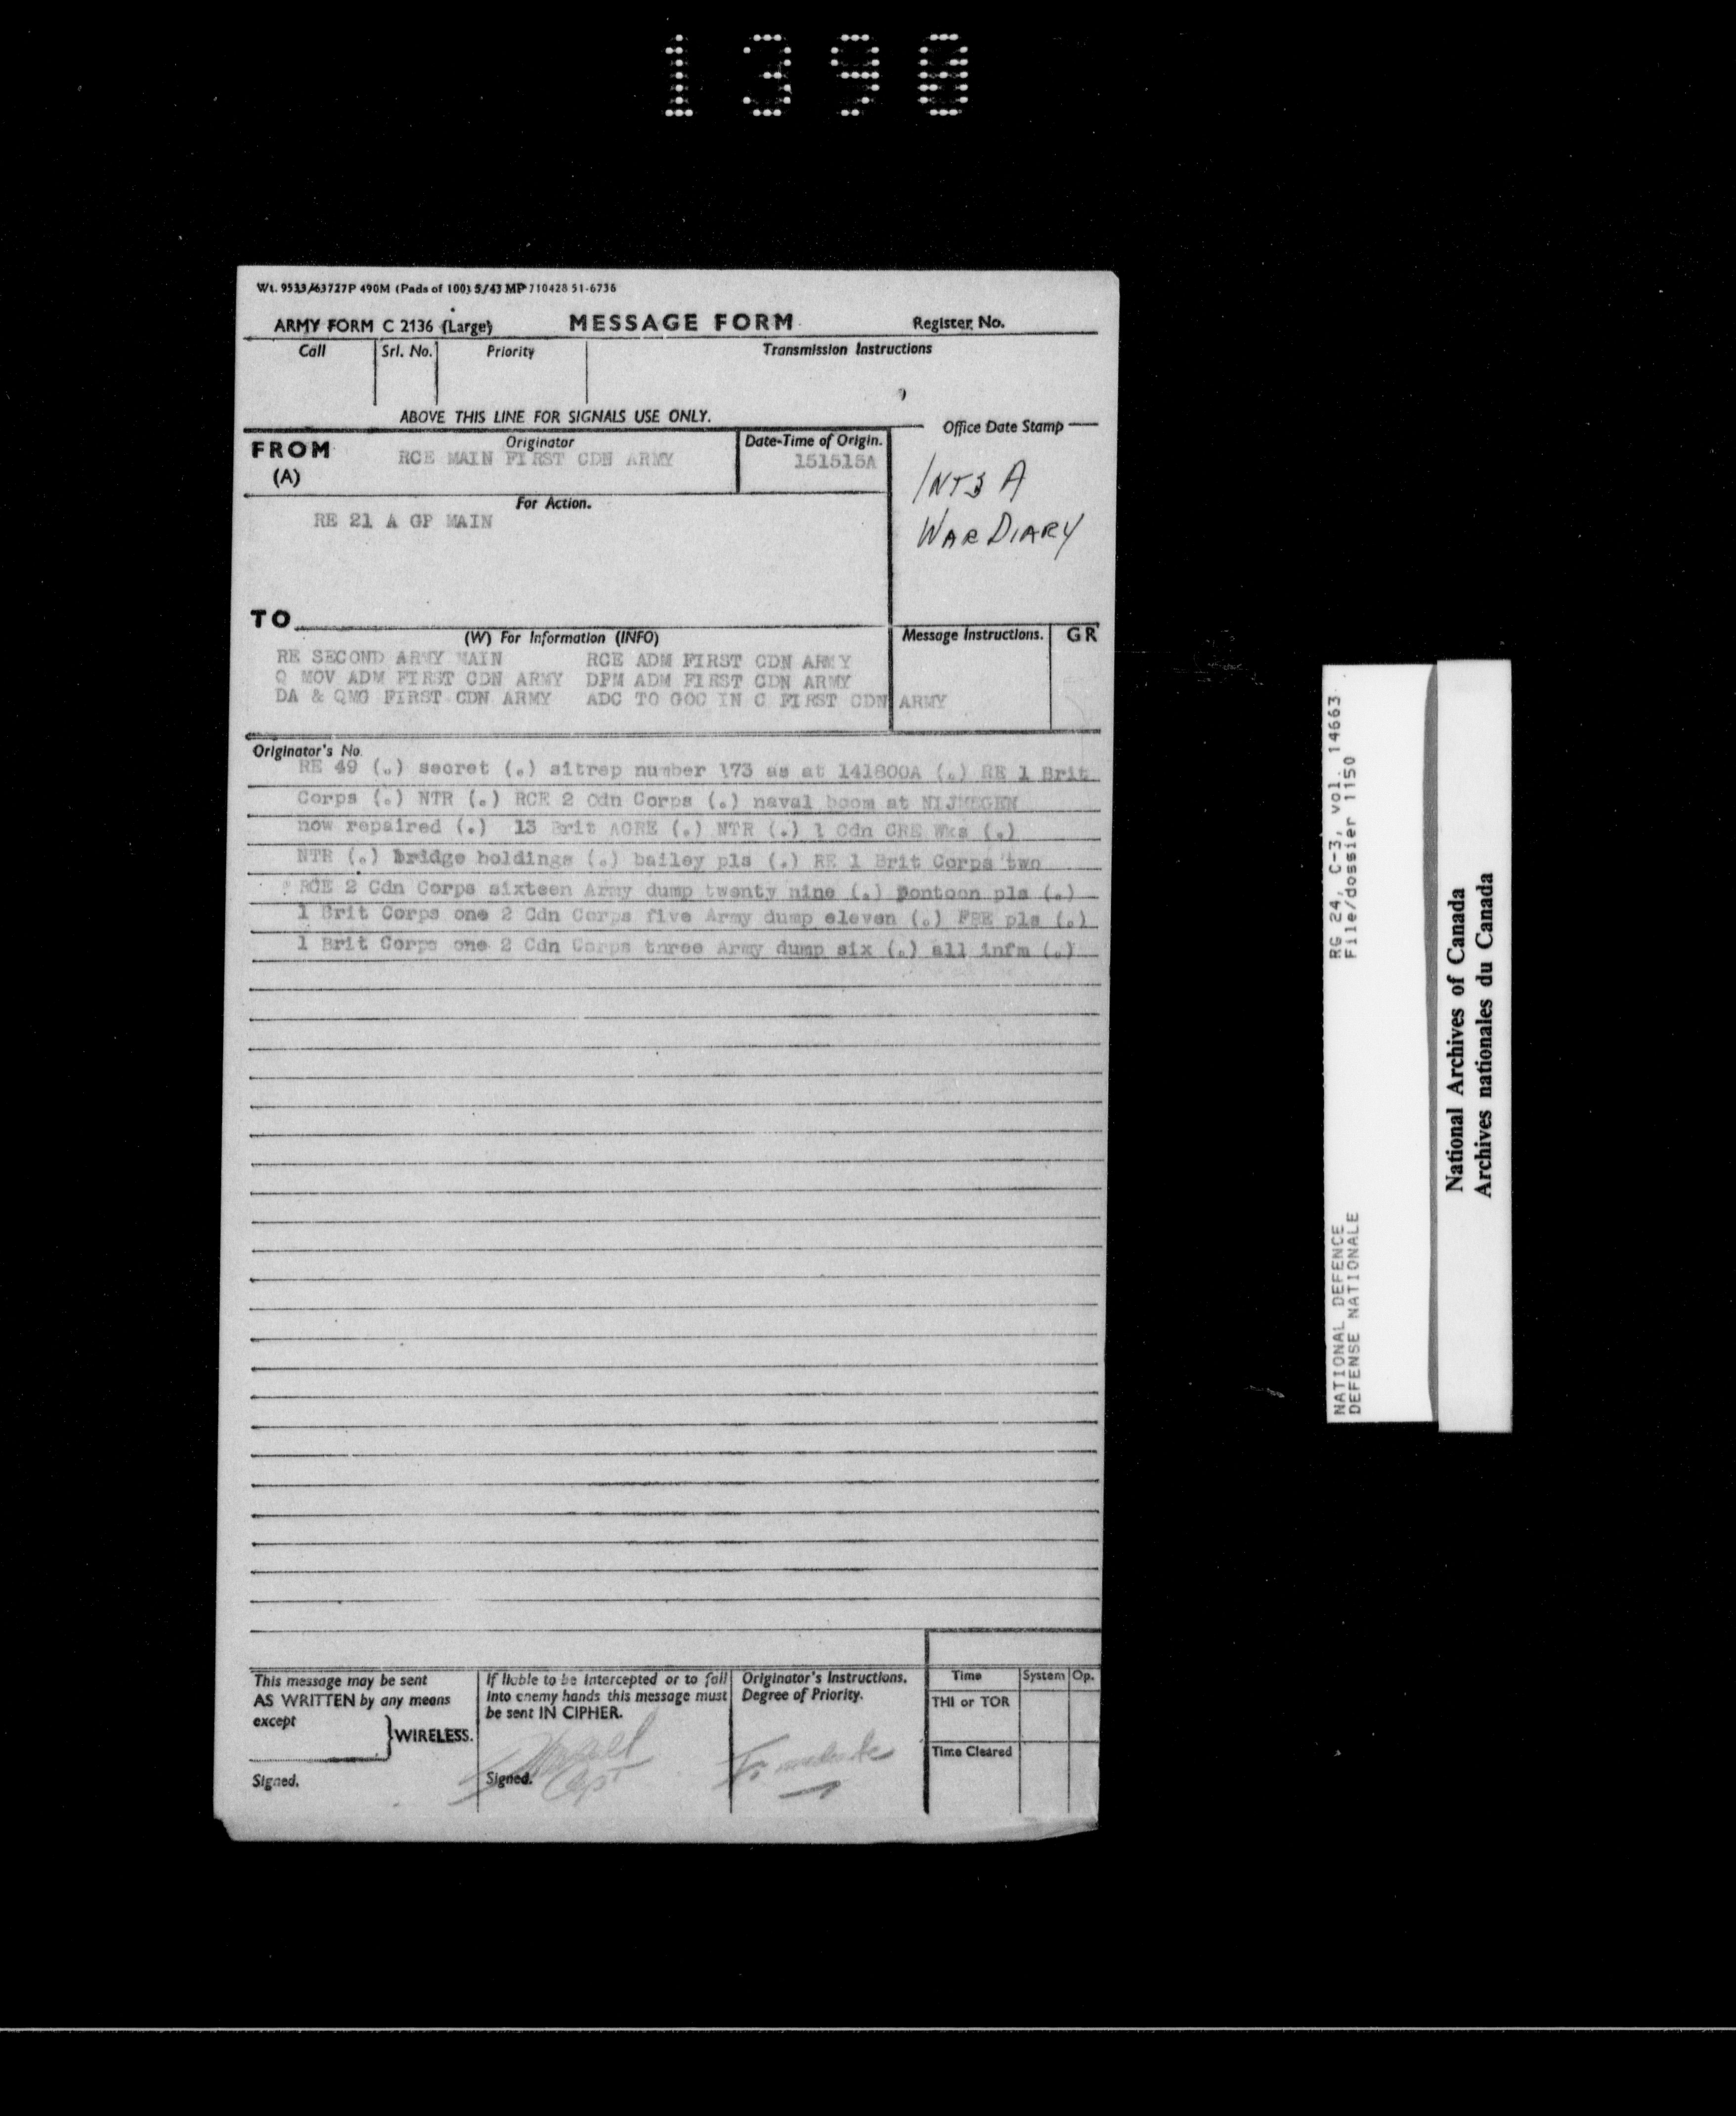 1390
Wt. 9533/63727P 490M (Pads of 100) 5/43 MP 710428 51-6736
ARMY FORM C 2136 (Large) MESSAGE FORM Register No.
Call Srl. No. Priority Transmission Instructions
ABOVE THIS LINE FOR SIGNALS USE ONLY.
Office Date Stamp
FROM Originator Date-Time of Origin.
(A) RCE MAIN FIRST CDN ARMY 151515A
INTS A
WAR DIARY
For Action.
RE 21 A GP MAIN
TO
(W) For Information (INFO) Message Instructions. GR
RE SECOND ARMY MAIN RCE ADM FIRST CDN ARMY
Q MOV ADM FIRST CDN ARMY DPM ADM FIRST CDN ARMY
DA & QMG FIRST CDN ARMY ADC TO GOC IN C FIRST CDN ARMY
Originator's No.
RE 49 (.) secret (.) sitrep number 173 as at 141800A (.) RE 1 Brit
Corps (.) NTR (.) RCE 2 Cdn Corps (.) naval boom at NIJMEGEN
now repaired (.) 13 Brit AGRE (.) NTR (.) 1 Cdn CRE Wks (.)
NTR (.) bridge holdings (.) bailey pls (.) RE 1 Brit Corps two
RCE 2 Cdn Corps sixteen Army dump twenty nine (.) pontoon pls (.)
1 Brit Corps one 2 Cdn Corps five Army dump eleven (.) FBE pls (.)
1 Brit Corps one 2 Cdn Corps three Army dump six (.) all infm (.)
This message may be sent
AS WRITTEN by any means
except
WIRELESS.
Signed.
If liable to be intercepted or to fall
into enemy hands this message must
be sent IN CIPHER.
Signed.
Capt
Originator's Instructions.
Degree of Priority.
Immediate
Time System Op.
THI or TOR
Time Cleared
RG 24, C-3, vol. 14663
File/dossier 1150
NATIONAL DEFENCE
DEFENSE NATIONALE
National Archives of Canada
Archives nationales du Canada